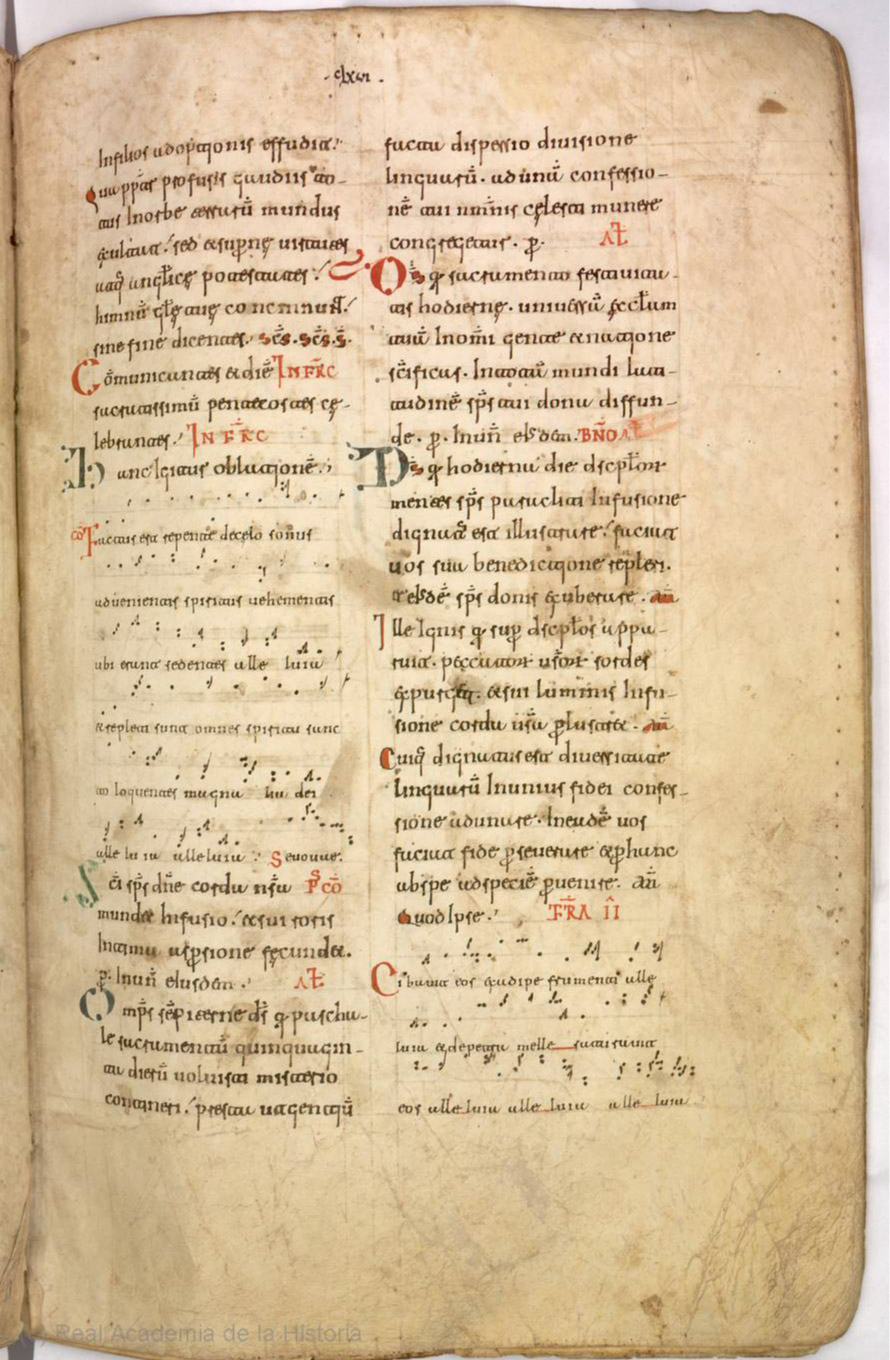 · clxvi ·
In filios adoptionis effudit.
Qua ppt̄ profusis gaudiis to-
tus In orbe terrarū mundus
exultat. sed et supernę uirtutes
atq; anglicę potestates.
himnū glę tuę concinnunt.
sine fine dicentes. Sc̄s. Sc̄s. S̄.
Cōmunicantes et diē INFRC
sacratissimū pentecostes cę-
lebrantes. INFRC
Hanc Igitur oblationē.
cō Factus est repente de celo sonus
aduenientis spiritus uehementis
ubi erant sedentes alle luia
et repleti sunt omnes spiritu sanc
to loquentes magna lia dei
alle lu ia alleluia Seuouae.
Sc̄i sp̄s dn̄e corda nr̄a P̄S CŌ
mundet Infusio. et sui roris
Intima aspersione fęcundet.
p̄. In un̄ eiusdem. ALT̄
Omp̄s sēpiterne dſ̄ q̄ pascha-
le sacramentū quinquagin-
ta dierū uoluisti misterio
contineri. presta ut gentiū
facta dispersio diuisione
linguarū. ad unū confessio-
nē tui nominis cęlesti munere
congregetur. p̄. ALT̄
Dſ̄ q̄ sacramento festiuita-
tis hodiernę. uniuersū ęcclam
tuā In omī gente et natione
sc̄ificas. In totū mundi lati-
tudinē sp̄s tui dona diffun-
de. p̄. In un̄ eisdem. BÑO ALT̄
Dſ̄ q̄ hodierna die discplor
mentes sp̄s paracliti Infusione
dignatꝰ est illustrare. faciat
uos sua benedictione repleri.
et eisdē sp̄s donis exuberare. am̄
Ille Ignis q̄ sup discplos appa-
ruit. peccator ur̄or sordes
expurget. et sui luminis Infu-
sione corda ur̄a plustret. am̄
Cuiq; dignatus est diuersitate
linguarū In unius fidei confes-
sione adunare. In eadē uos
faciat fide perseuerare et p hanc
ab spe ad speciē peruenire. am̄
Quod Ipse. FRĀ II
Cibauit eos ex adipe frumenti alle
luia et de petra melle saturauit
eos alleluia alle luia alle luia
Real Academia de la Historia